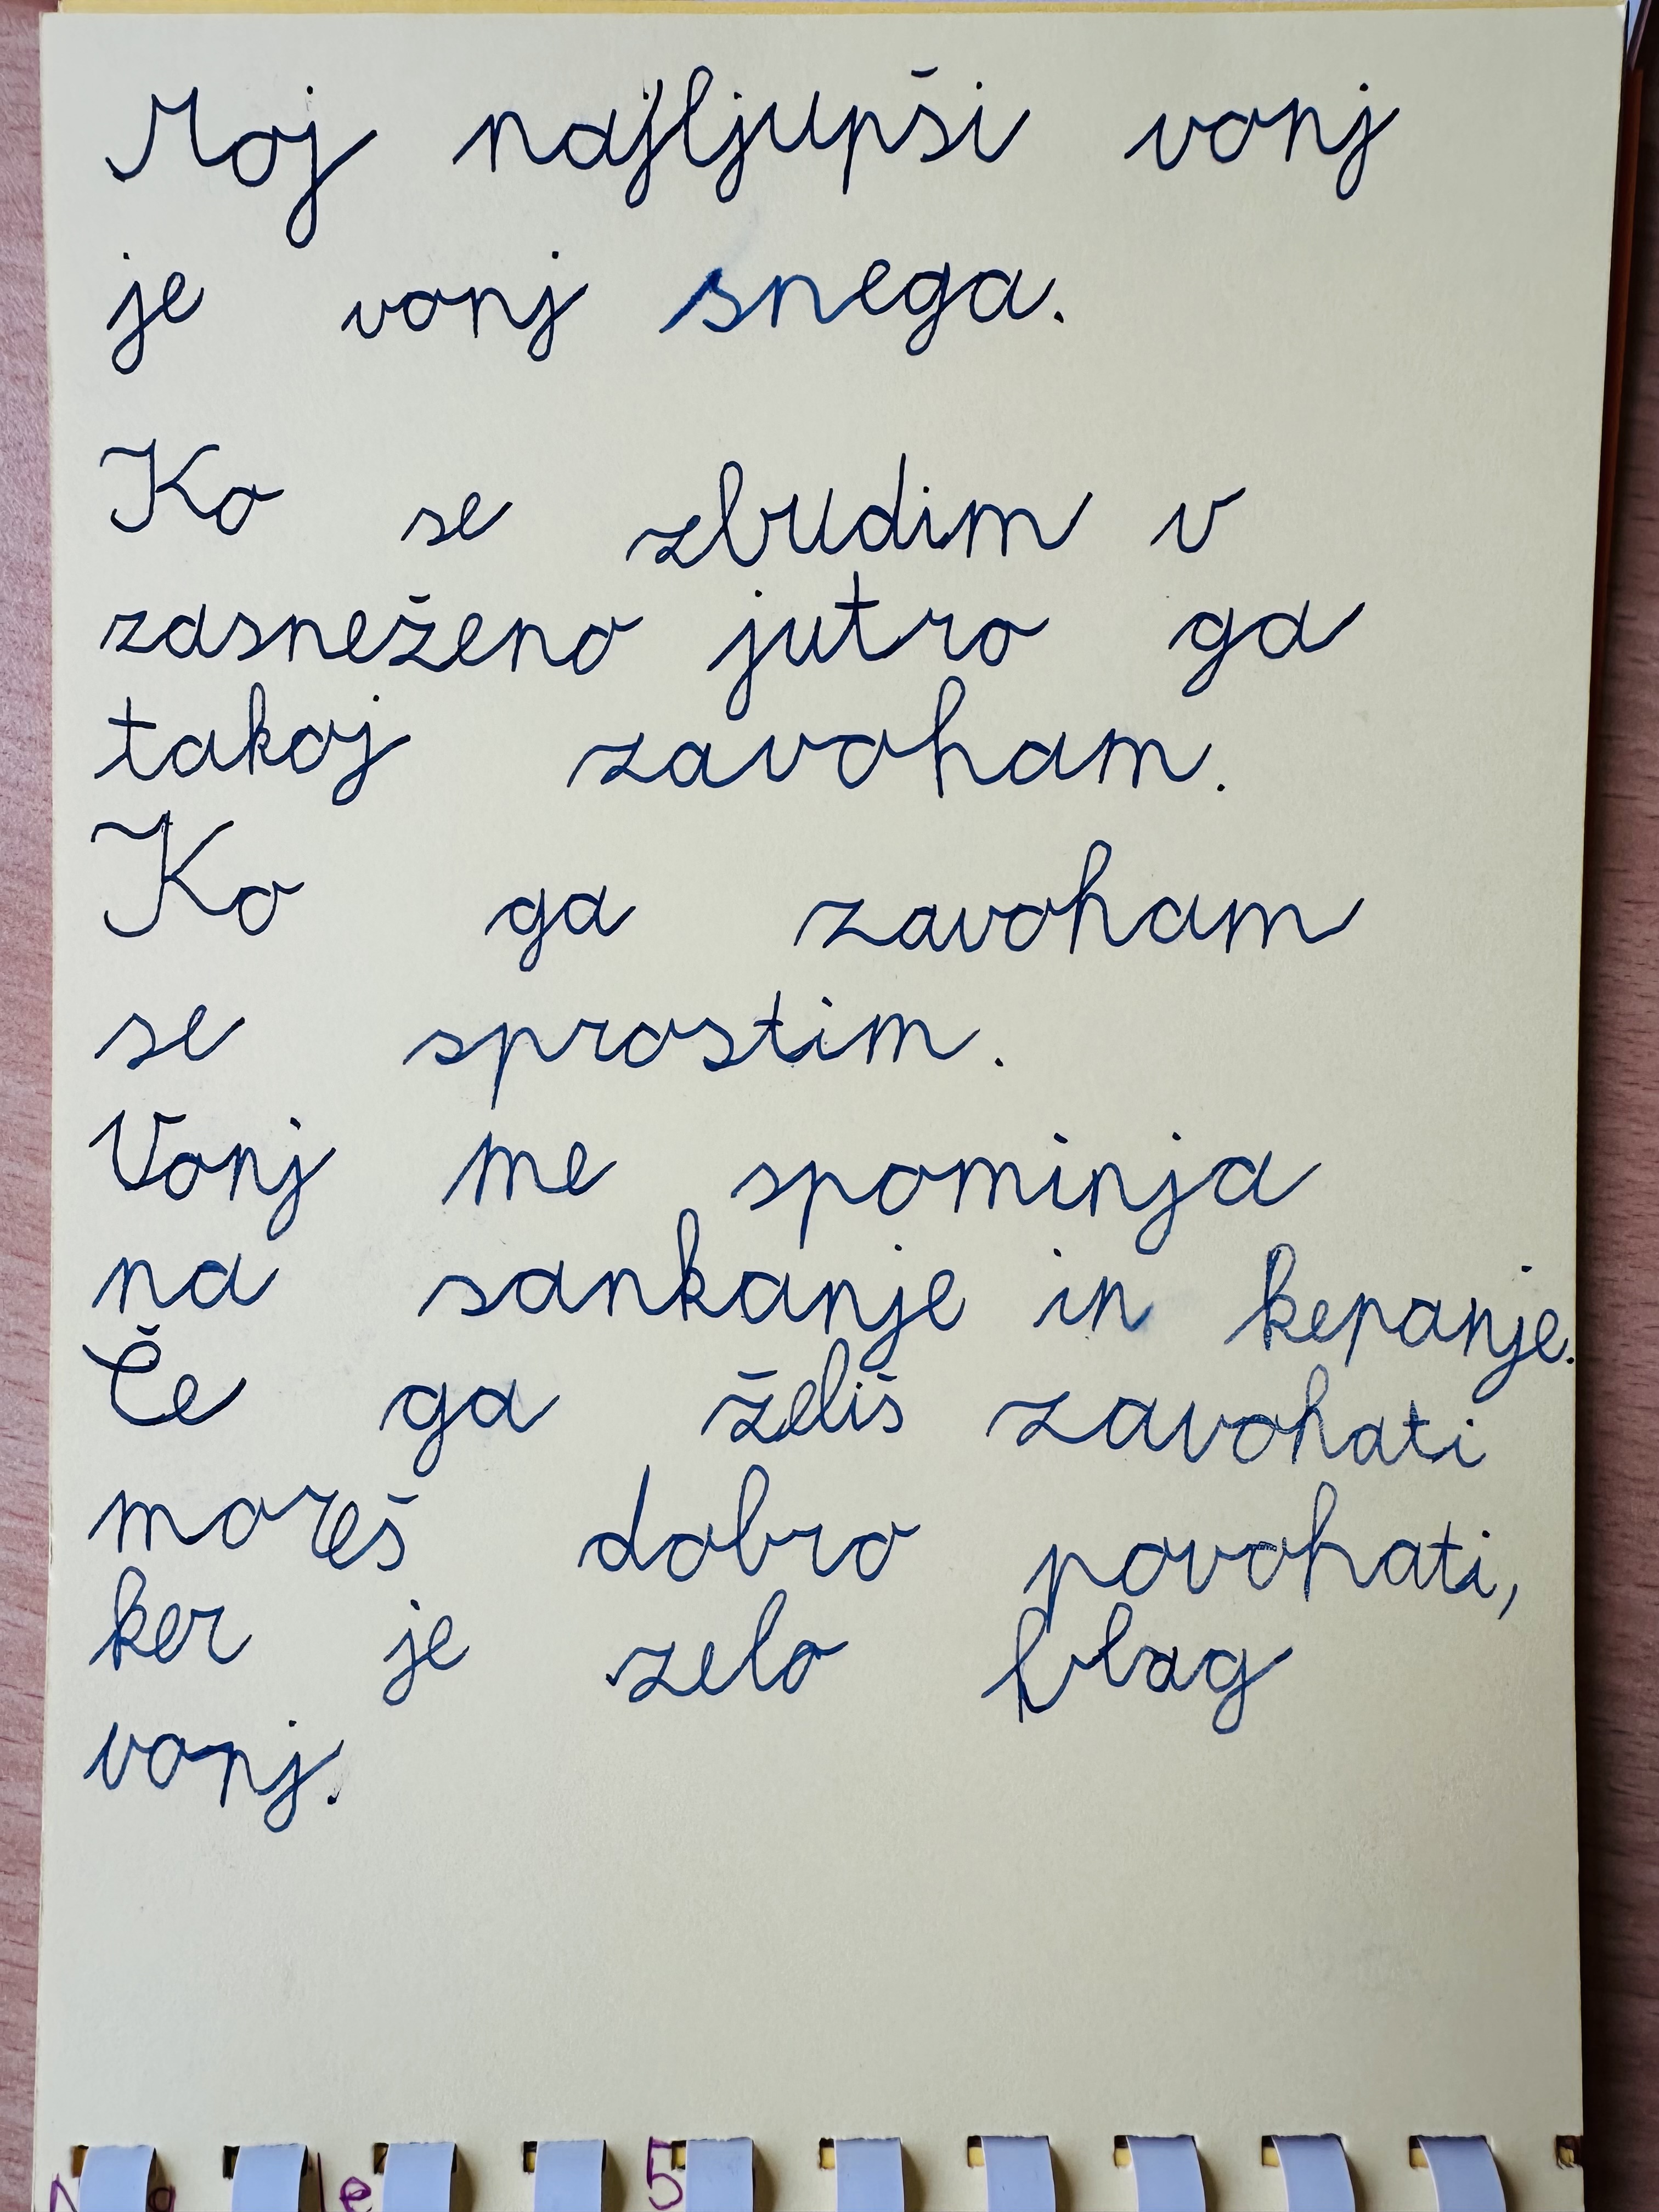 Moj najljupši vonj
je vonj snega.
Ko se zbudim v
zasneženo jutro ga
takoj zavoham.
Ko ga zavoham
se sprostim.
Vonj me spominja
na sankanje in kepanje.
Če ga želiš zavohati
moreš dobro povohati,
ker je zelo blag
vonj.
5